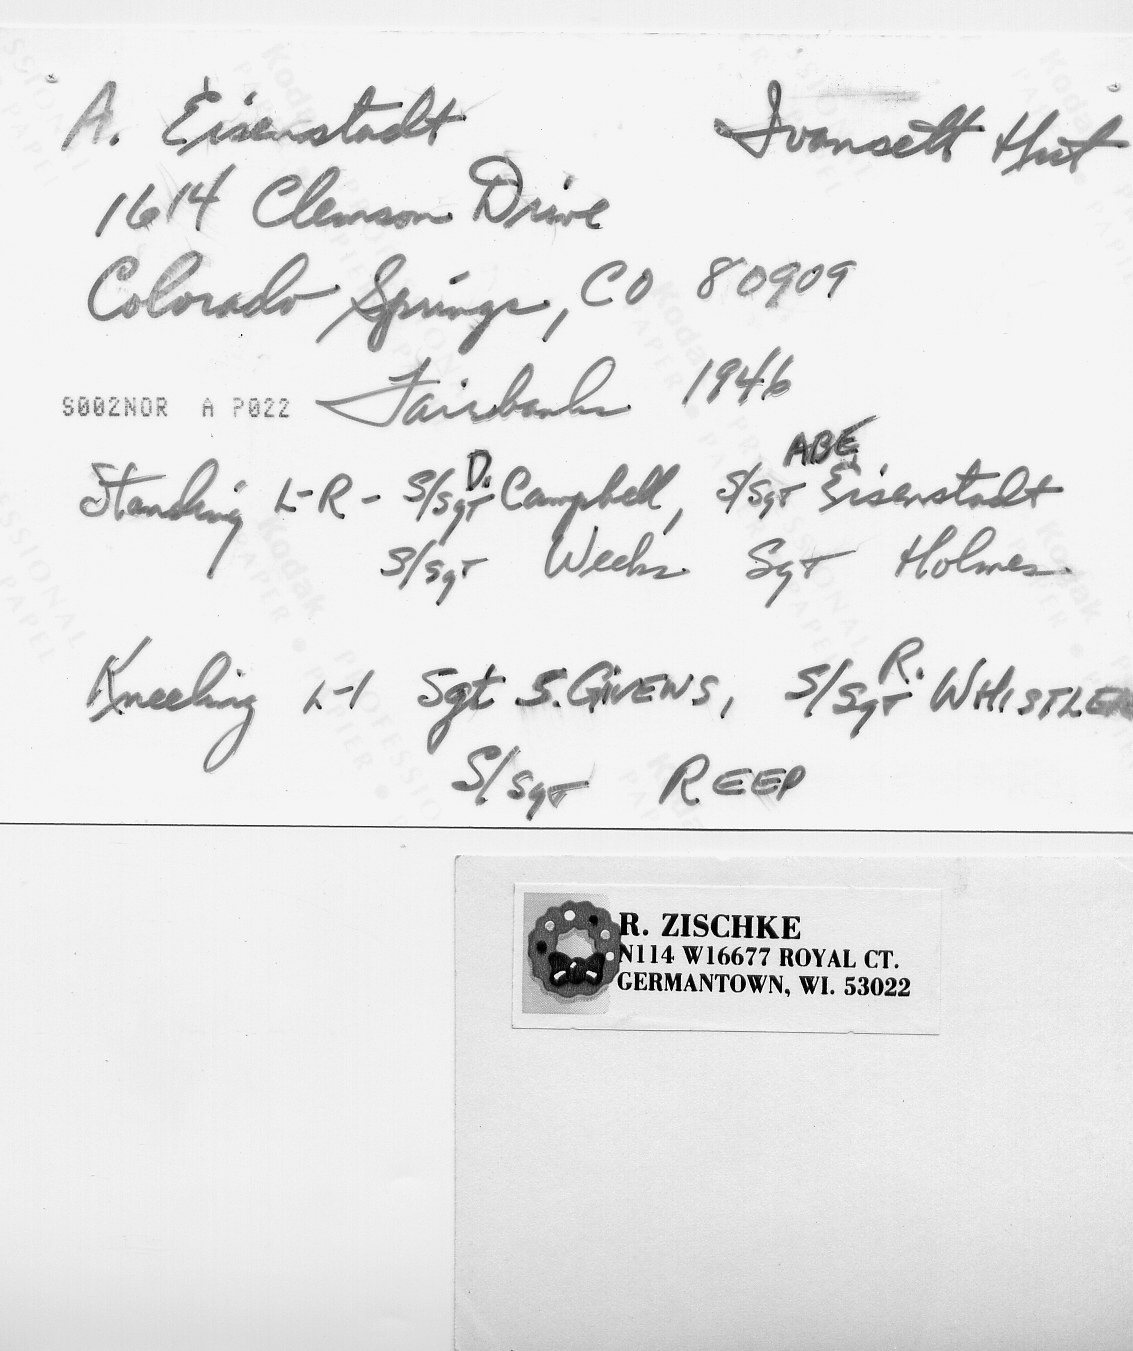 A. Eisenstadt Ivansett Hut
1614 Clemson Drive
Colorado Springs, CO 80909
Fairbanks 1946
S002NOR A P022
ABE
Standing L-R - S/Sgt D. Campbell, S/Sgt Eisenstadt
S/Sgt Weeks Sgt Holmes
Kneeling L-1 Sgt S. GIVENS, S/Sgt R. WHISTLER
S/Sgt REEP
R. ZISCHKE
N114 W16677 ROYAL CT.
GERMANTOWN, WI. 53022